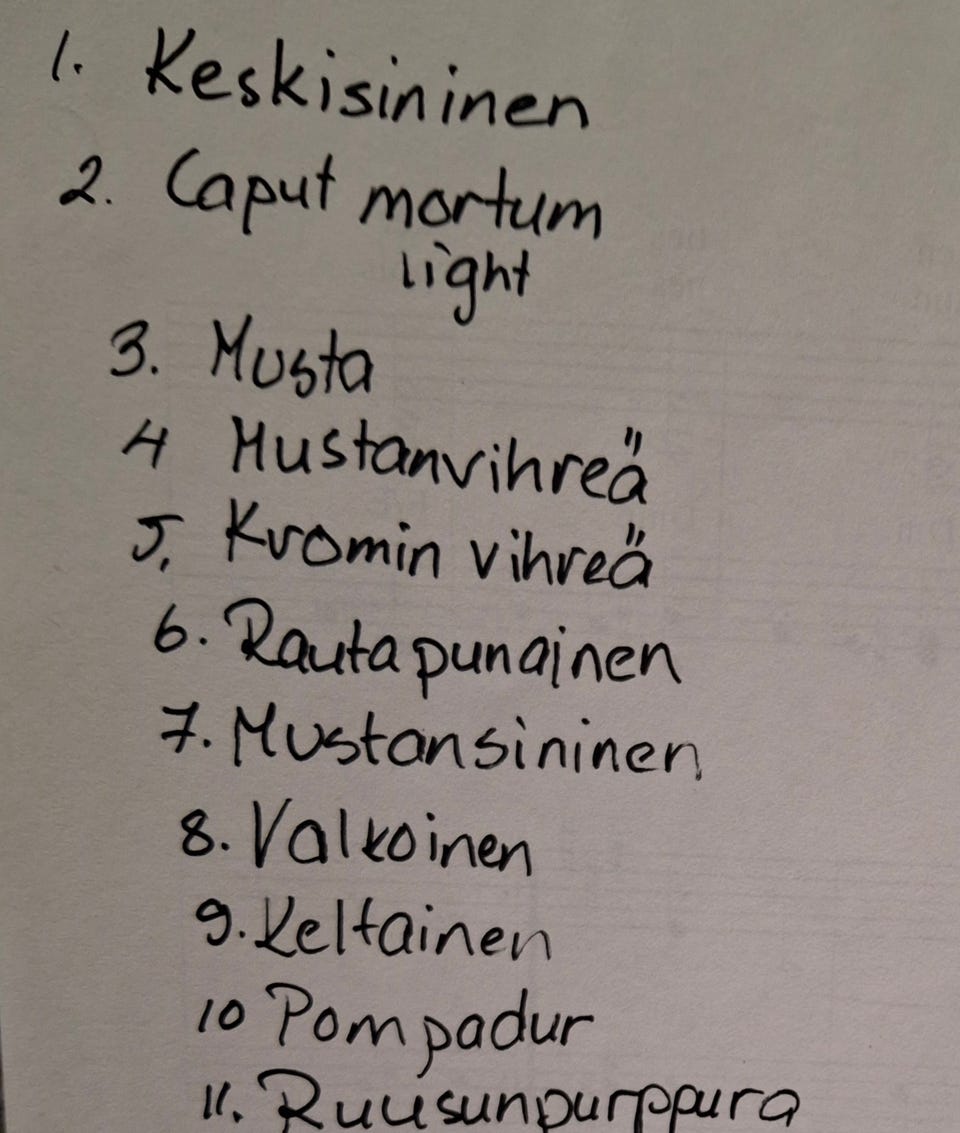 1. Keskisininen
2. Caput mortum
light
3. Musta
4 Mustanvihreä
5. Kromin vihreä
6. Rautapunainen
7. Mustansininen
8. Valkoinen
9. Keltainen
10 Pompadur
11. Ruusunpurppura